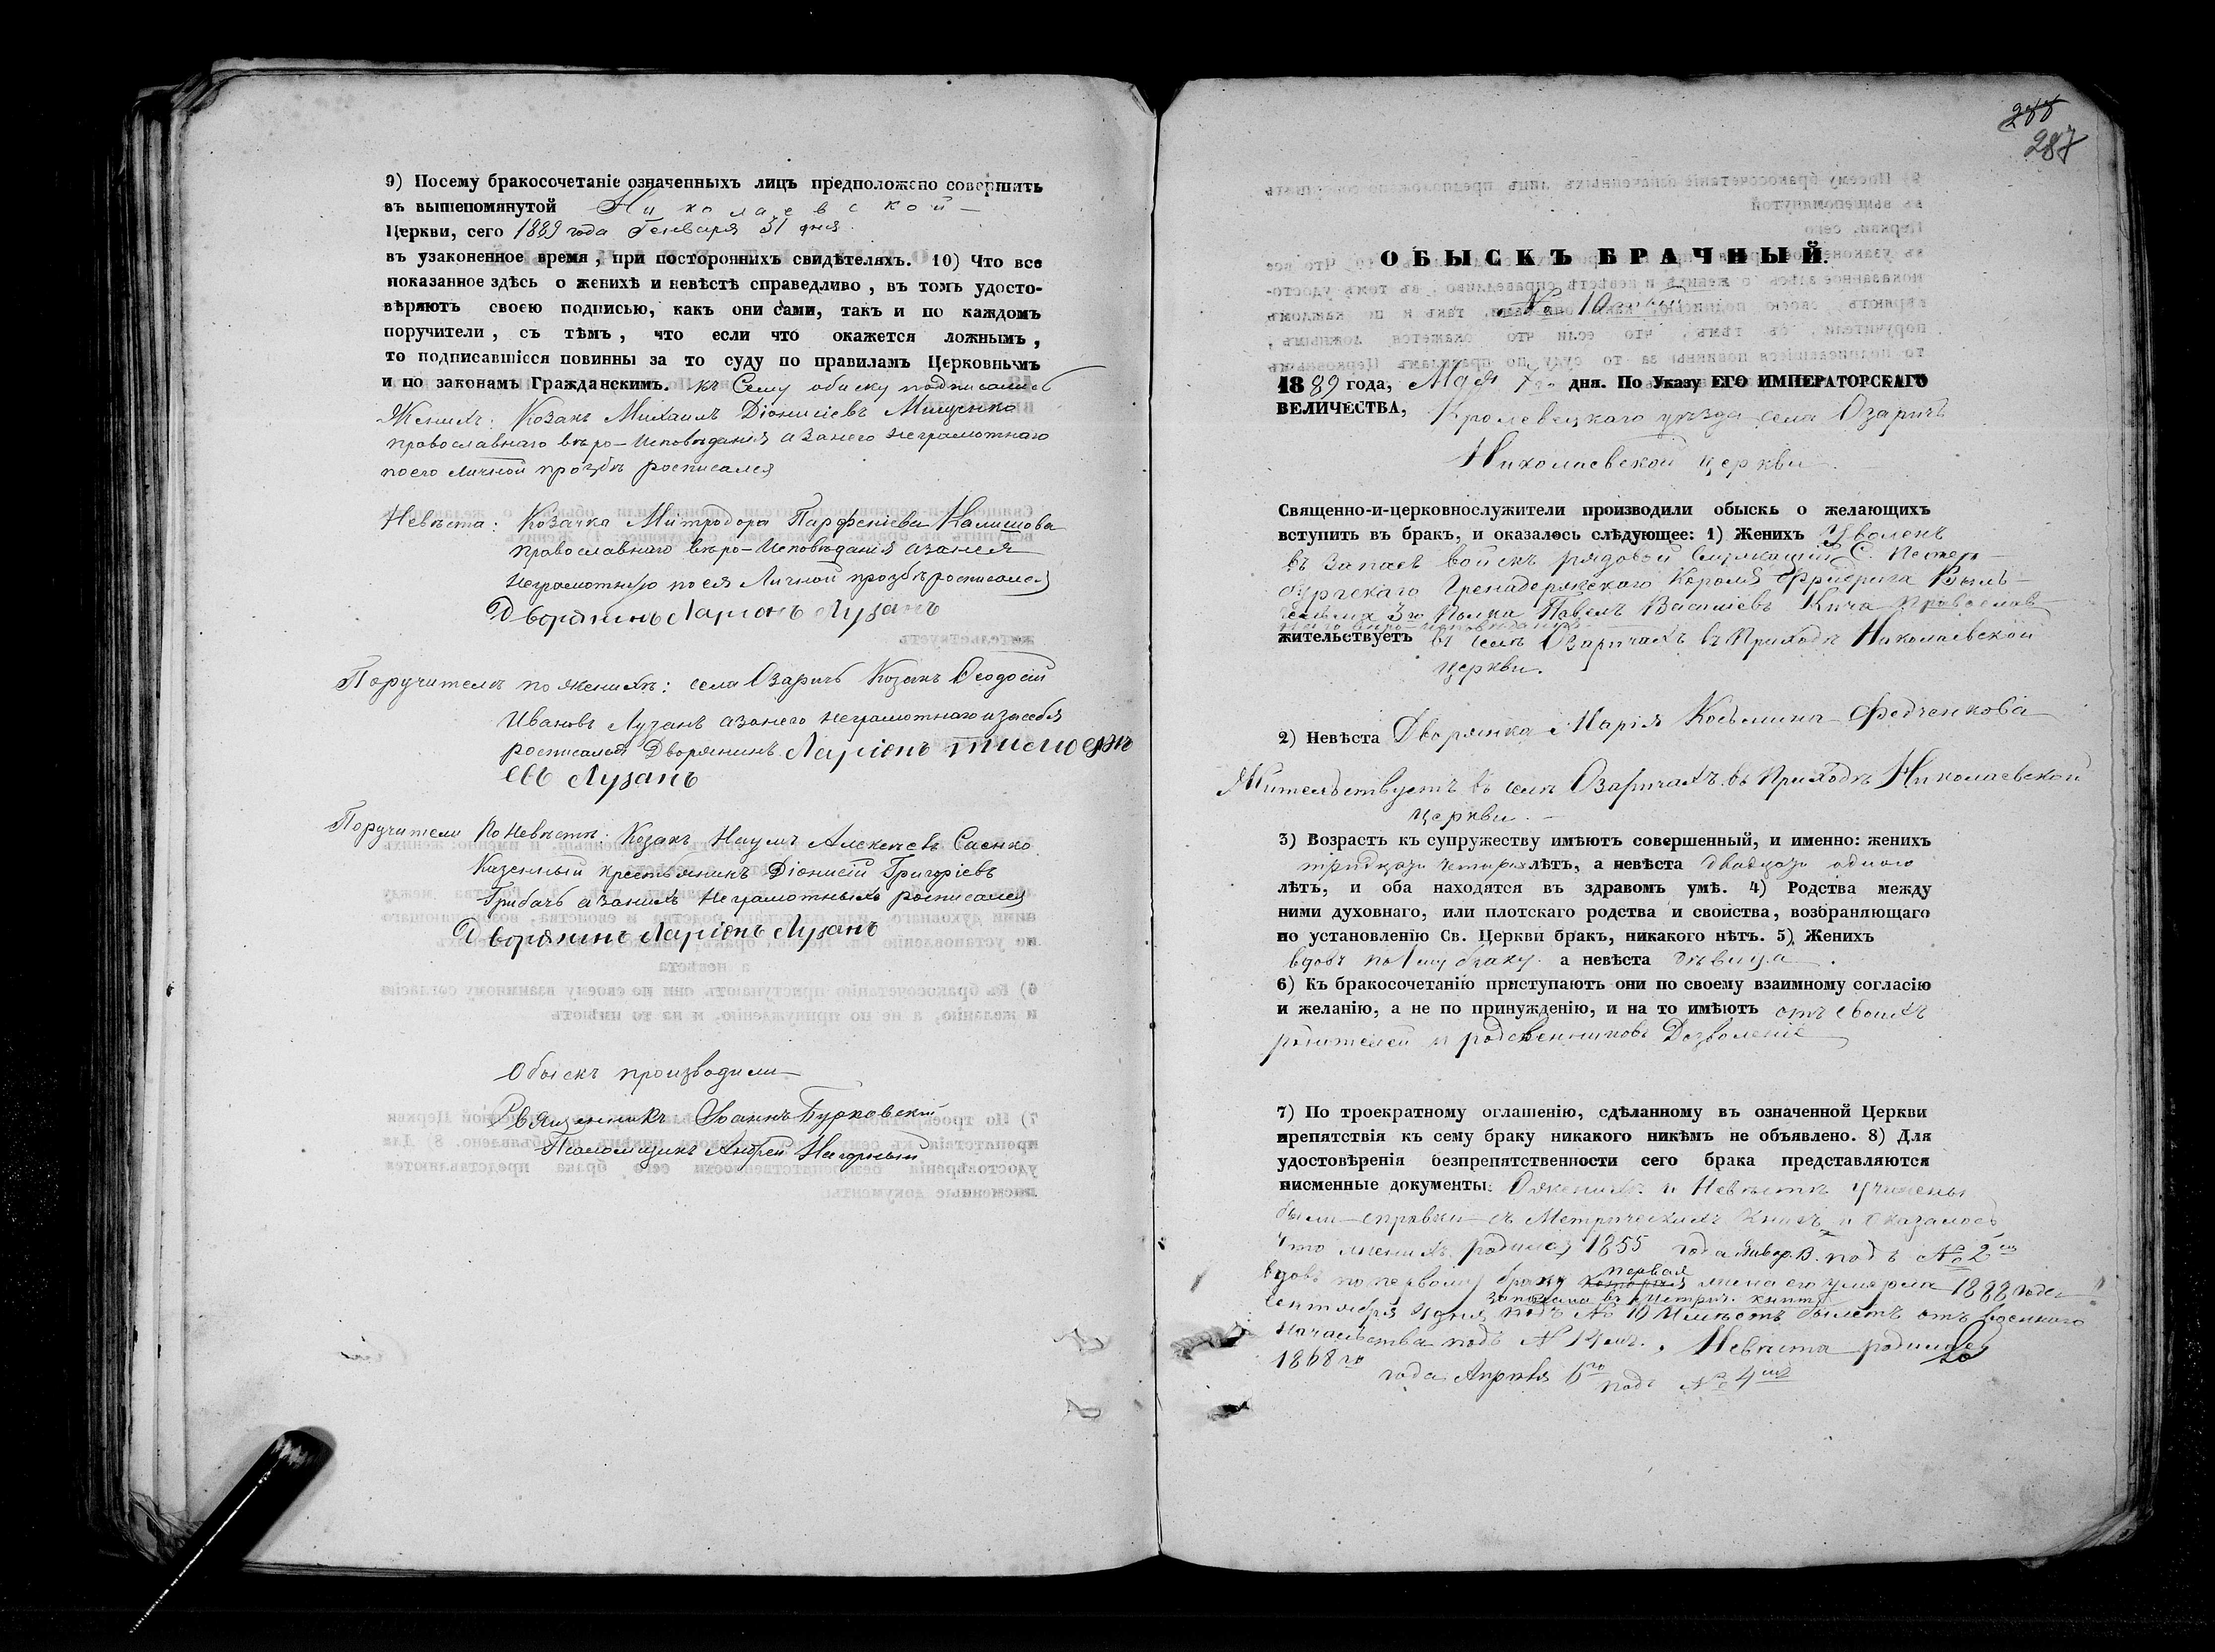 9) Посему бракосочетаніе означенныхъ лицъ предположено совершить
въ вышепомянутой Николаевской
Церкви, сего 1889 года Генваря 31 дня
въ узаконенное время, при постороннихъ свидѣтеляхъ. 10) Что все
показанное здѣсь о женихѣ и невѣстѣ справедливо, въ томъ удосто-
вѣряютъ своею подписью, какъ они сами, такъ и по каждомъ
поручители, съ тѣмъ, что если что окажется ложнымъ,
то подписавшіеся повинны за то суду по правиламъ Церковнымъ
и по законамъ Гражданскимъ. къ Сему обыску подписались
Женихъ: Козакъ Михаилъ Діонисіевъ Мищенко
православнаго вѣро-исповѣданія а за него неграмотнаго
по его личной прозбѣ росписался
Невѣста: Козачка Митродора Парфеніева Калишова
православнаго вѣро-исповѣданія а за нея
неграмотную по ея Личной прозбѣ росписался
Дворянинъ Ларіонъ Лузанъ
Поручители по женихѣ: села Озаричъ Козакъ Ѳеодосій
Ивановъ Лузанъ а за него неграмотнаго и за себя
росписался Дворянинъ Ларіонъ Тимоѳѣ
евъ Лузанъ
Поручители по Невѣстѣ: Козакъ Наумъ Алексѣевъ Саенко
Казенный крестьянинъ Діонисій Григоріевъ
Грибачъ а за нихъ неграмотныхъ росписался
Дворянинъ Ларіонъ Лузанъ
Обыскъ производили
Священникъ Іоаннъ Бурковскій
Псаломщикъ Андрей Нагорный
287
ОБЫСКЪ БРАЧНЫЙ.
№ 10
1889 года, Мая 7го дня. По Указу ЕГО ИМПЕРАТОРСКАГО
ВЕЛИЧЕСТВА, Кролевецкаго уѣзда села Озаричъ
Николаевской церкви
Священно-и-церковнослужители производили обыскъ о желающихъ
вступить въ бракъ, и оказалось слѣдующее: 1) Женихъ Уволенъ
въ запасъ войскъ рядовой Служащій С. Петер-
бургскаго Гренадерскаго Короля Фридриха Виль-
гельма 3го Полка Павелъ Василіевъ Кича православ-
наго вѣро-исповѣданія
жительствуетъ въ селѣ Озаричахъ въ Приходѣ Николаевской
церкви.
2) Невѣста Дворянка Марія Косьмина Федченкова
Жительствуетъ въ селѣ Озаричахъ въ Приходѣ Николаевской
церкви.
3) Возрастъ къ супружеству имѣютъ совершенный, и именно: женихъ
тридцати четырех лѣтъ, а невѣста двадцати одного
лѣтъ, и оба находятся въ здравомъ умѣ. 4) Родства между
ними духовнаго, или плотскаго родства и свойства, возбраняющаго
по установленію Св. Церкви бракъ, никакого нѣтъ. 5) Женихъ
вдовъ по 1му браку а невѣста дѣвица.
6) Къ бракосочетанію приступаютъ они по своему взаимному согласію
и желанію, а не по принужденію, и на то имѣютъ отъ своихъ
родителей и родственниковъ Дозволеніе
7) По троекратному оглашенію, сдѣланному въ означенной Церкви
препятствія къ сему браку никакого никѣмъ не объявлено. 8) Для
удостовѣренія безпрепятственности сего брака представляются
писменные документы: О женихѣ и Невѣстѣ учинены
были справки съ Метрическихъ книгъ и оказалось
что женихъ родился 1855 года Январ. 13. подъ № 2
вдовъ по первому браку первая жена его умерла 1888 года
записана въ Метрич. книгѣ
Сентября 4 дня подъ № 10 Имѣетъ билетъ отъ военнаго
начальства подъ № 14мъ. Невѣста родилась
1868го года Апрѣля 6го подъ № 4мъ